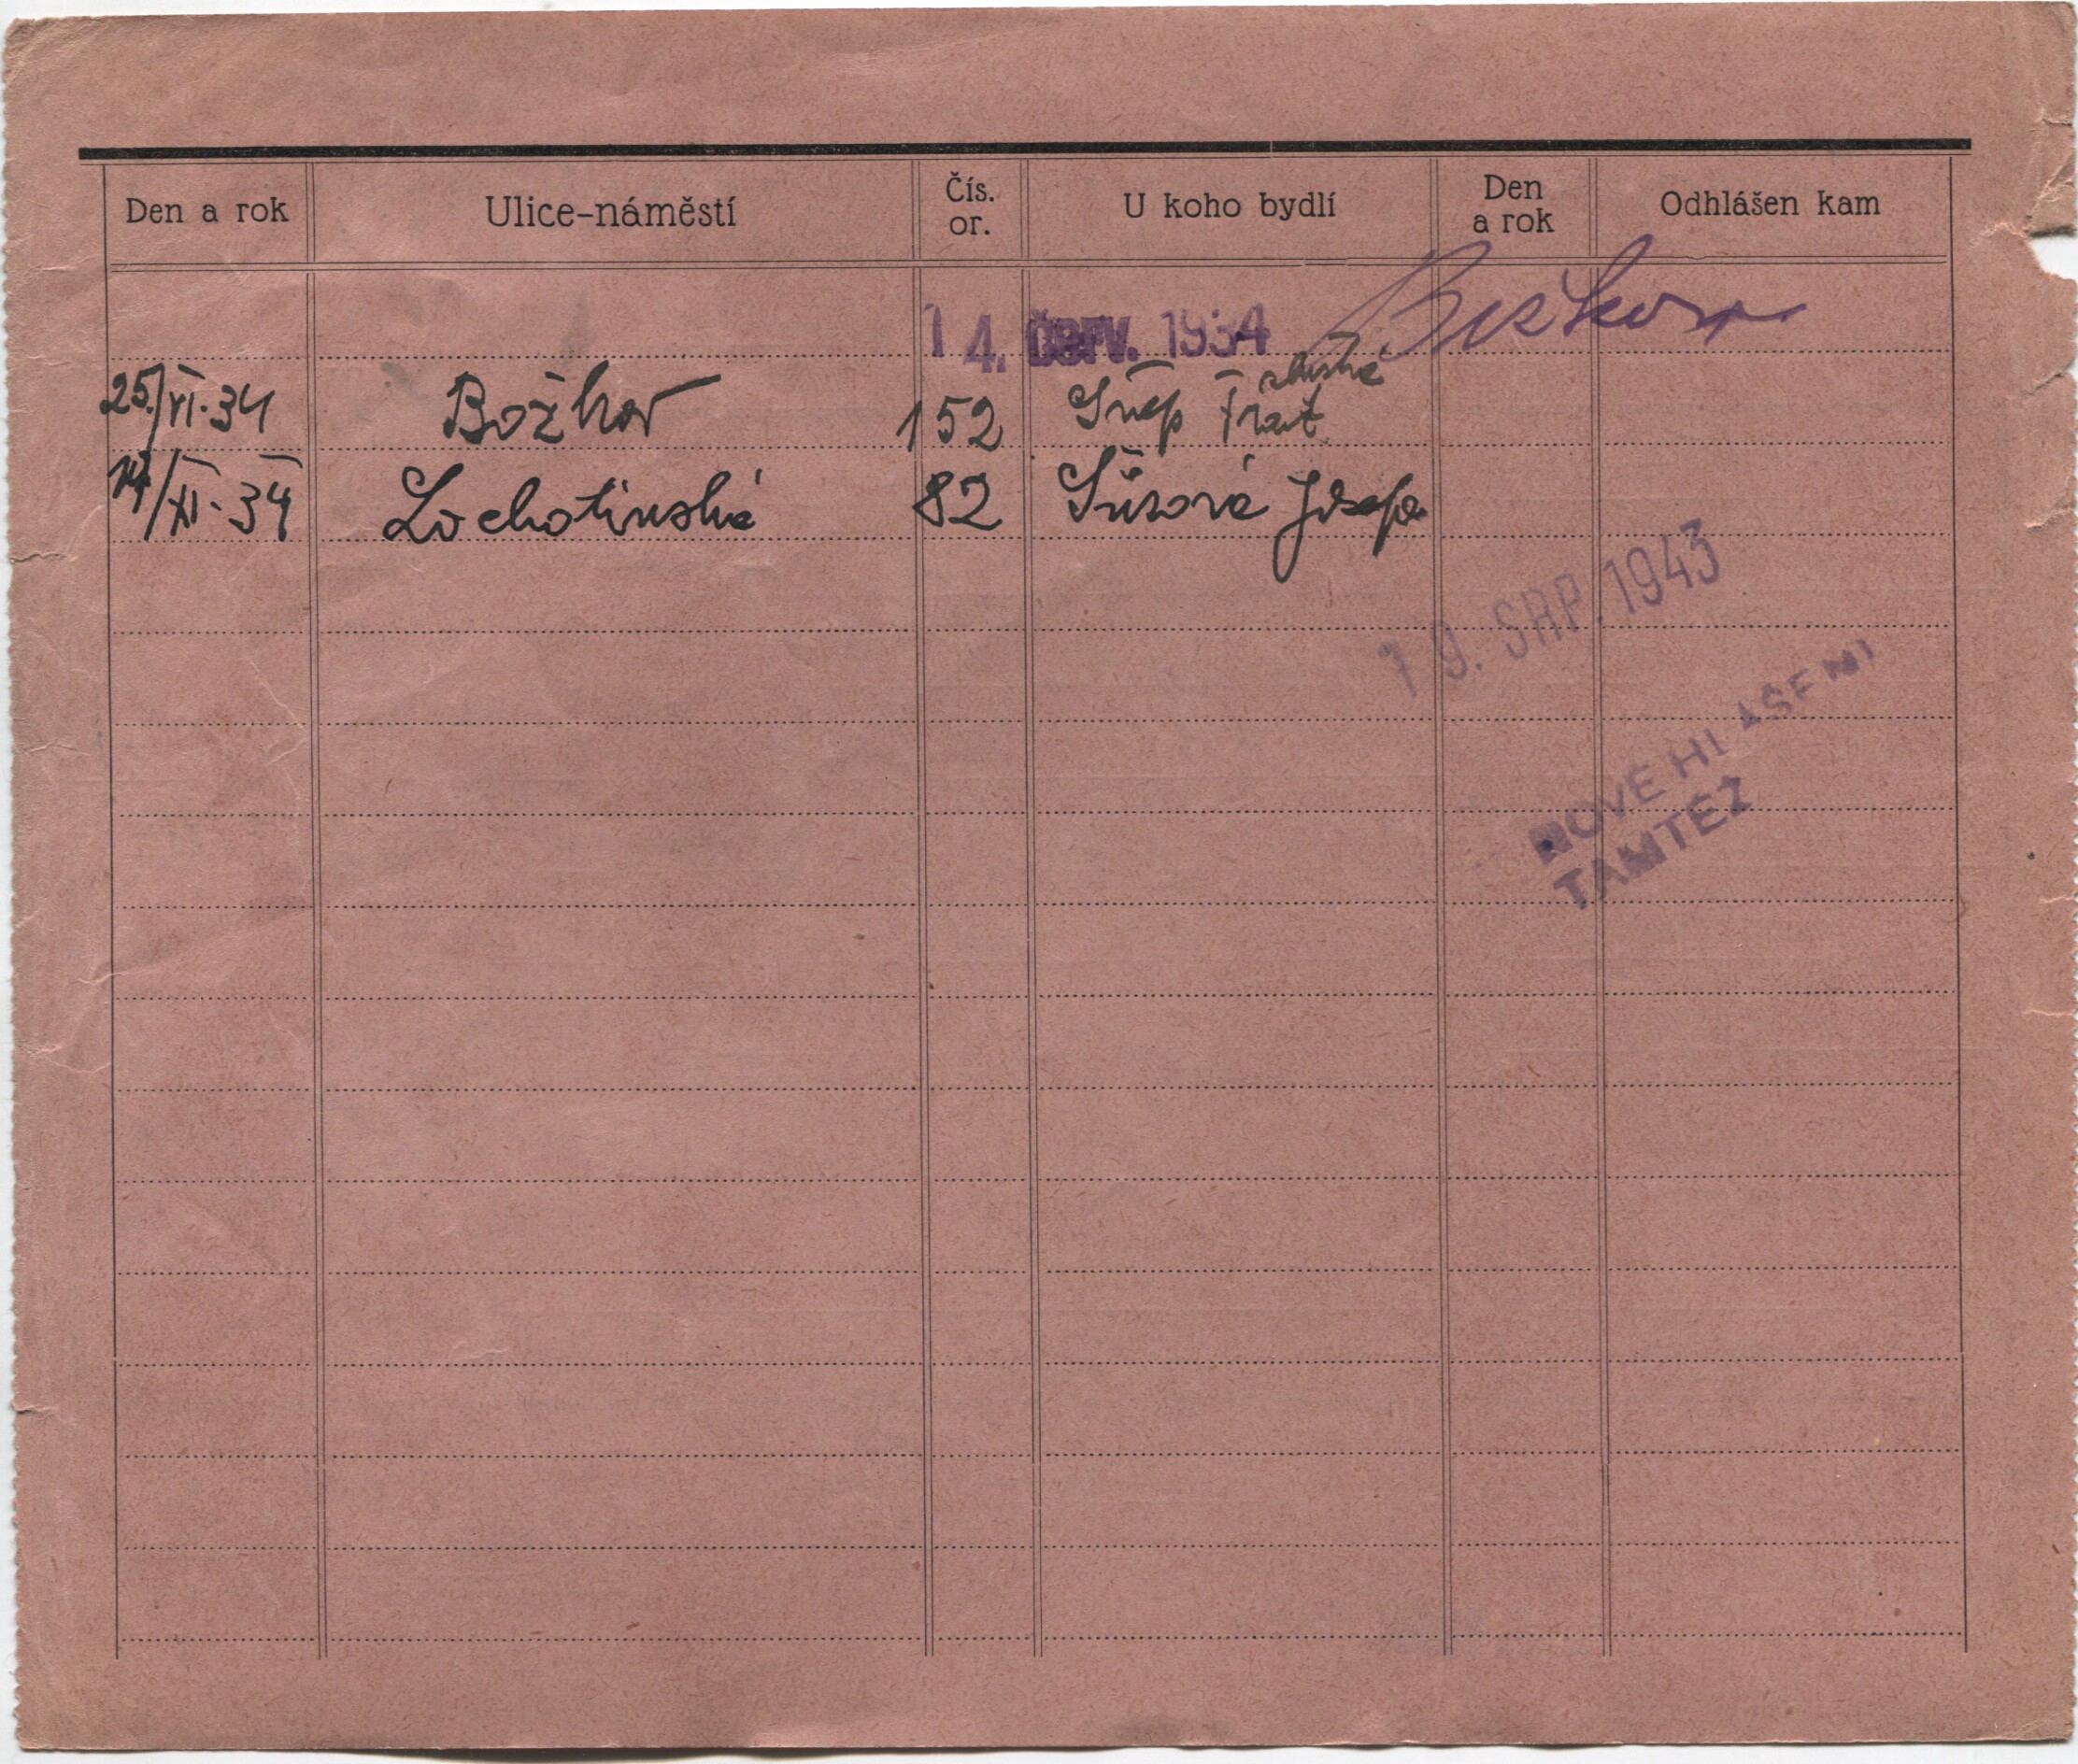 Den a rok Ulice-náměstí Čís. or. U koho bydlí Den a rok Odhlášen kam
14. červ. 1934
25./VI.34 Božkov 152
14/XI.34 Lochotínská 82 Josefa
19. SRP. 1943
NOVÉ HLÁŠENÍ
TAMTÉŽ